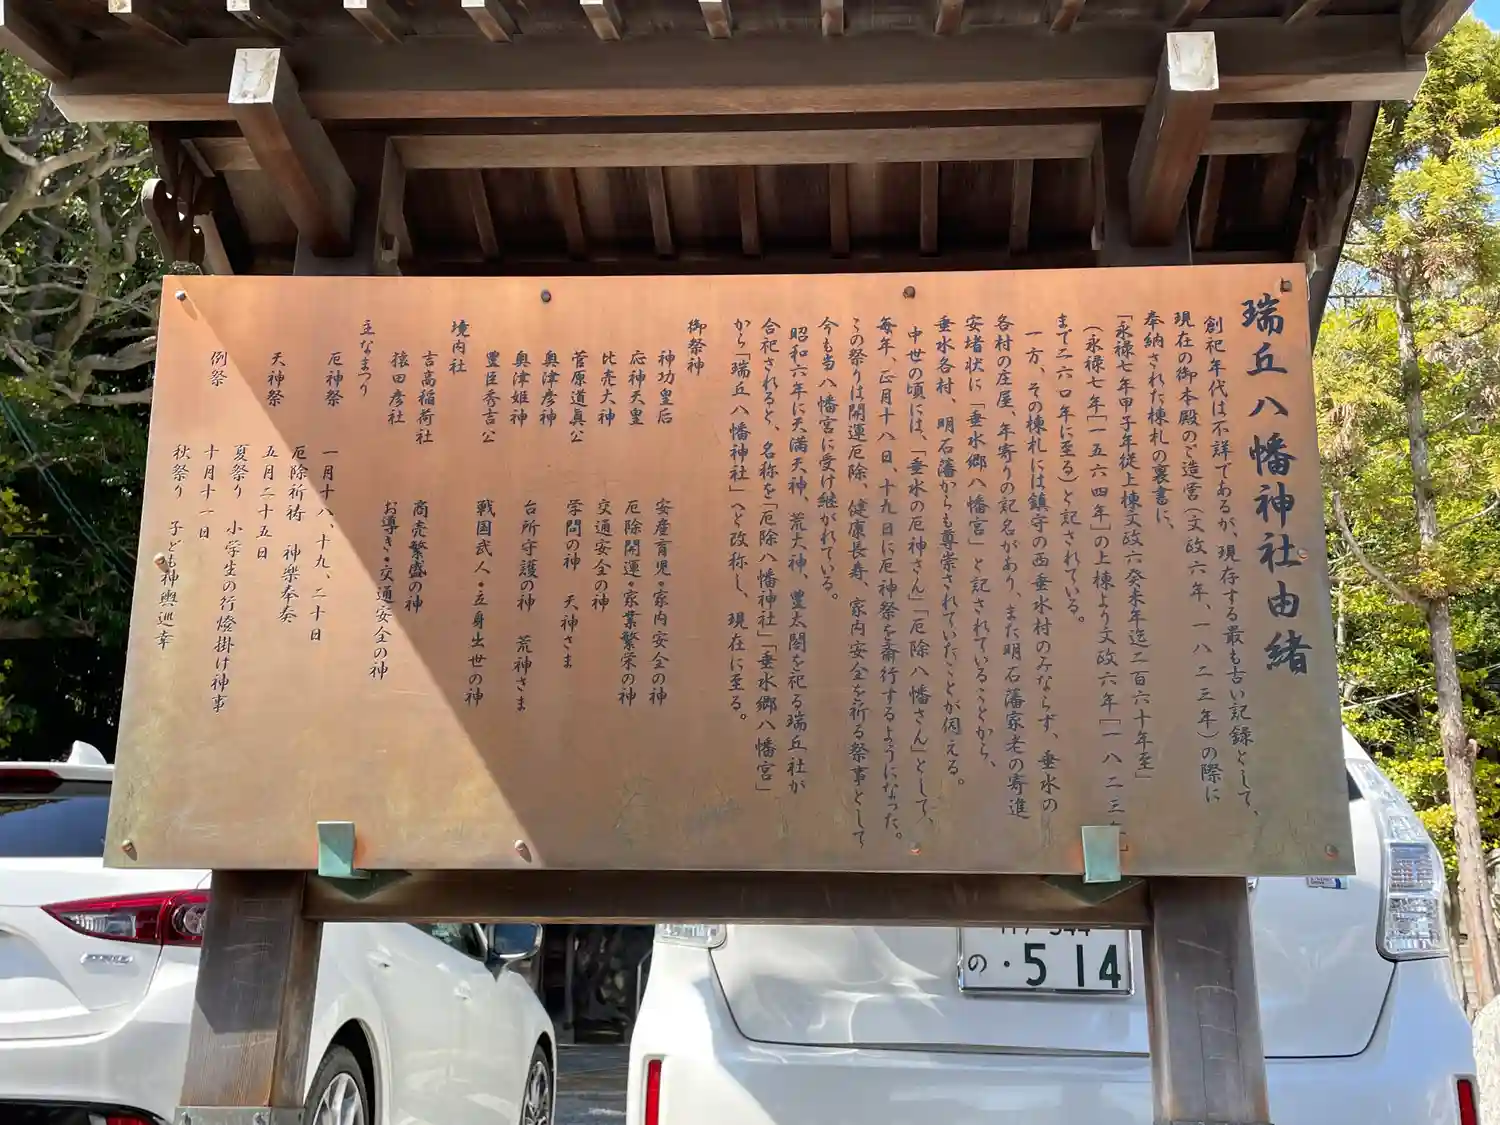 瑞丘八幡神社由緒
創祀年代は不詳であるが、現存する最も古い記録として、
現在の御本殿のご造営(文政六年、一八二三年)の際に
奉納された棟札の裏書に、
「永禄七年甲子年従上棟文政六癸未年迄二百六十年至」
(永禄七年[一五六四年]の上棟より文政六年[一八二三年]
まで二六〇年に至る)と記されている。
一方、その棟札には鎮守の西垂水村のみならず、垂水の
各村の庄屋、年寄りの記名があり、また明石藩家老の寄進
安堵状に「垂水郷八幡宮」と記されていることから、
垂水各村、明石藩からも尊崇されていたことが伺える。
中世の頃には、「垂水の厄神さん」「厄除八幡さん」として、
毎年、正月十八日、十九日に厄神祭を斎行するようになった。
この祭りは開運厄除、健康長寿、家内安全を祈る祭事として
今も当八幡宮に受け継がれている。
昭和六年に天満天神、荒大神、豊太閤を祀る瑞丘社が
合祀されると、名称を「厄除八幡神社」「垂水郷八幡宮」
から「瑞丘八幡神社」へと改称し、現在に至る。
御祭神
神功皇后 安産育児・家内安全の神
応神天皇 厄除開運・家業繁栄の神
比売大神 交通安全の神
菅原道真公 学問の神 天神さま
奥津彦神
奥津姫神 台所守護の神 荒神さま
豊臣秀吉公 戦国武人・立身出世の神
境内社
吉高稲荷社 商売繁盛の神
猿田彦社 お導き・交通安全の神
主なまつり
厄神祭 一月十八、十九、二十日
厄除祈祷 神楽奉奏
天神祭 五月二十五日
夏祭り 小学生の行燈掛け神事
例祭 十月十一日
秋祭り 子ども神輿巡幸
544
の・514